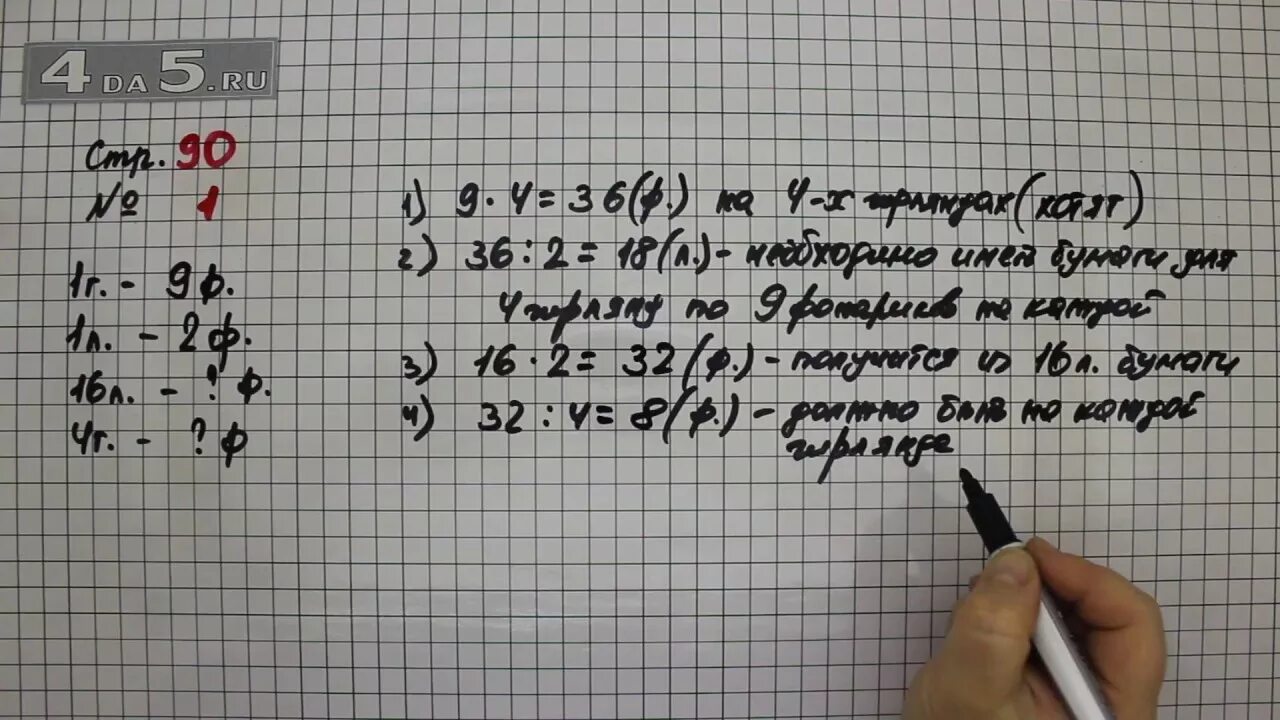 4 DA 5.RU
Стр. 90
№ 1
1г. - 9 ф.
1л. - 2 ф.
16л. - ? ф.
4г. - ? ф
1) 9 · 4 = 36 (ф.) на 4-х гирляндах (хотят)
2) 36 : 2 = 18 (л.) - необходимо имет бумаги для
4 гирлянд по 9 фонариков на каждой
3) 16 · 2 = 32 (ф.) - получится из 16 л. бумаги
4) 32 : 4 = 8 (ф.) - должно быть на каждой
гирлянде